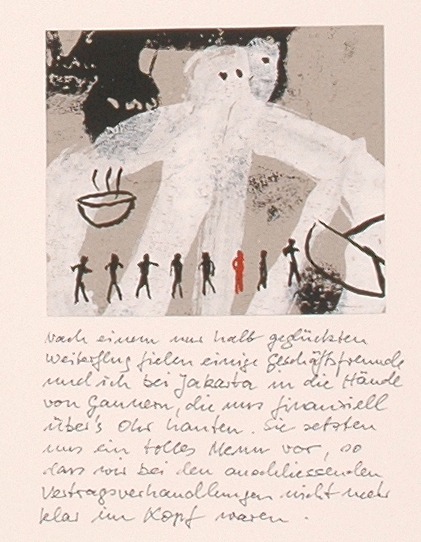 Nach einem nur halb geglückten
Weiterflug fielen einige Geschäftsfreunde
und ich bei Jakarta in die Hände
von Gaunern, die uns finanziell
über's Ohr hauten. Sie setzten
uns ein tolles Menu vor, so
dass wir bei den anschliessenden
Vertragsverhandlungen nicht mehr
klar im Kopf waren.